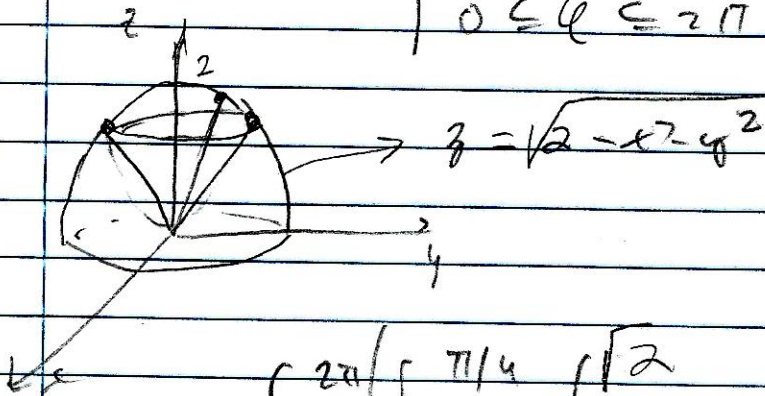 0 ≤ φ ≤ 2π
z
2
z = √2 - x² - y²
y
x
∫ 2π ( ∫ π/4 ∫ √2